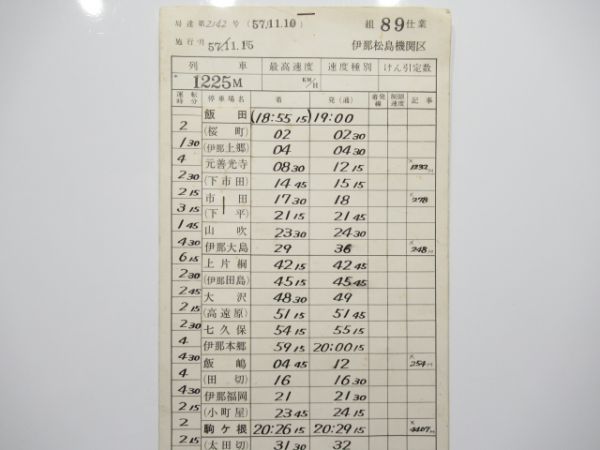 局達第2142号 (57.11.10) 組 89 仕業
施行 57.11.15 伊那松島機関区
列車 最高速度 速度種別 けん引定数
1225M KM/H
運転時分 停車場名 着 発(通) 着発線 制限速度 記事
飯田 (18:55 15) 19:00
2
(桜町) 02 02 30
1 30
(伊那上郷) 04 04 30
4
元善光寺 08 30 12 15 ×1232M
2 30
(下市田) 14 45 15 15
2 15
市田 17 30 18 ×278
3 15
(下平) 21 15 21 45
1 45
山吹 23 30 24 30
4 30
伊那大島 29 36 ×248M
6 15
上片桐 42 15 42 45
2 30
(伊那田島) 45 15 45 45
2 45
大沢 48 30 49
2 15
(高遠原) 51 15 51 45
2 30
七久保 54 15 55 15
4
伊那本郷 59 15 20:00 15
4 30
飯嶋 04 45 12 ×254M
4
(田切) 16 16 30
4 30
伊那福岡 21 21 30
2 15
(小町屋) 23 45 24 15
2
駒ケ根 20:26 15 20:29 15
2 15
(太田切) 31 30 32